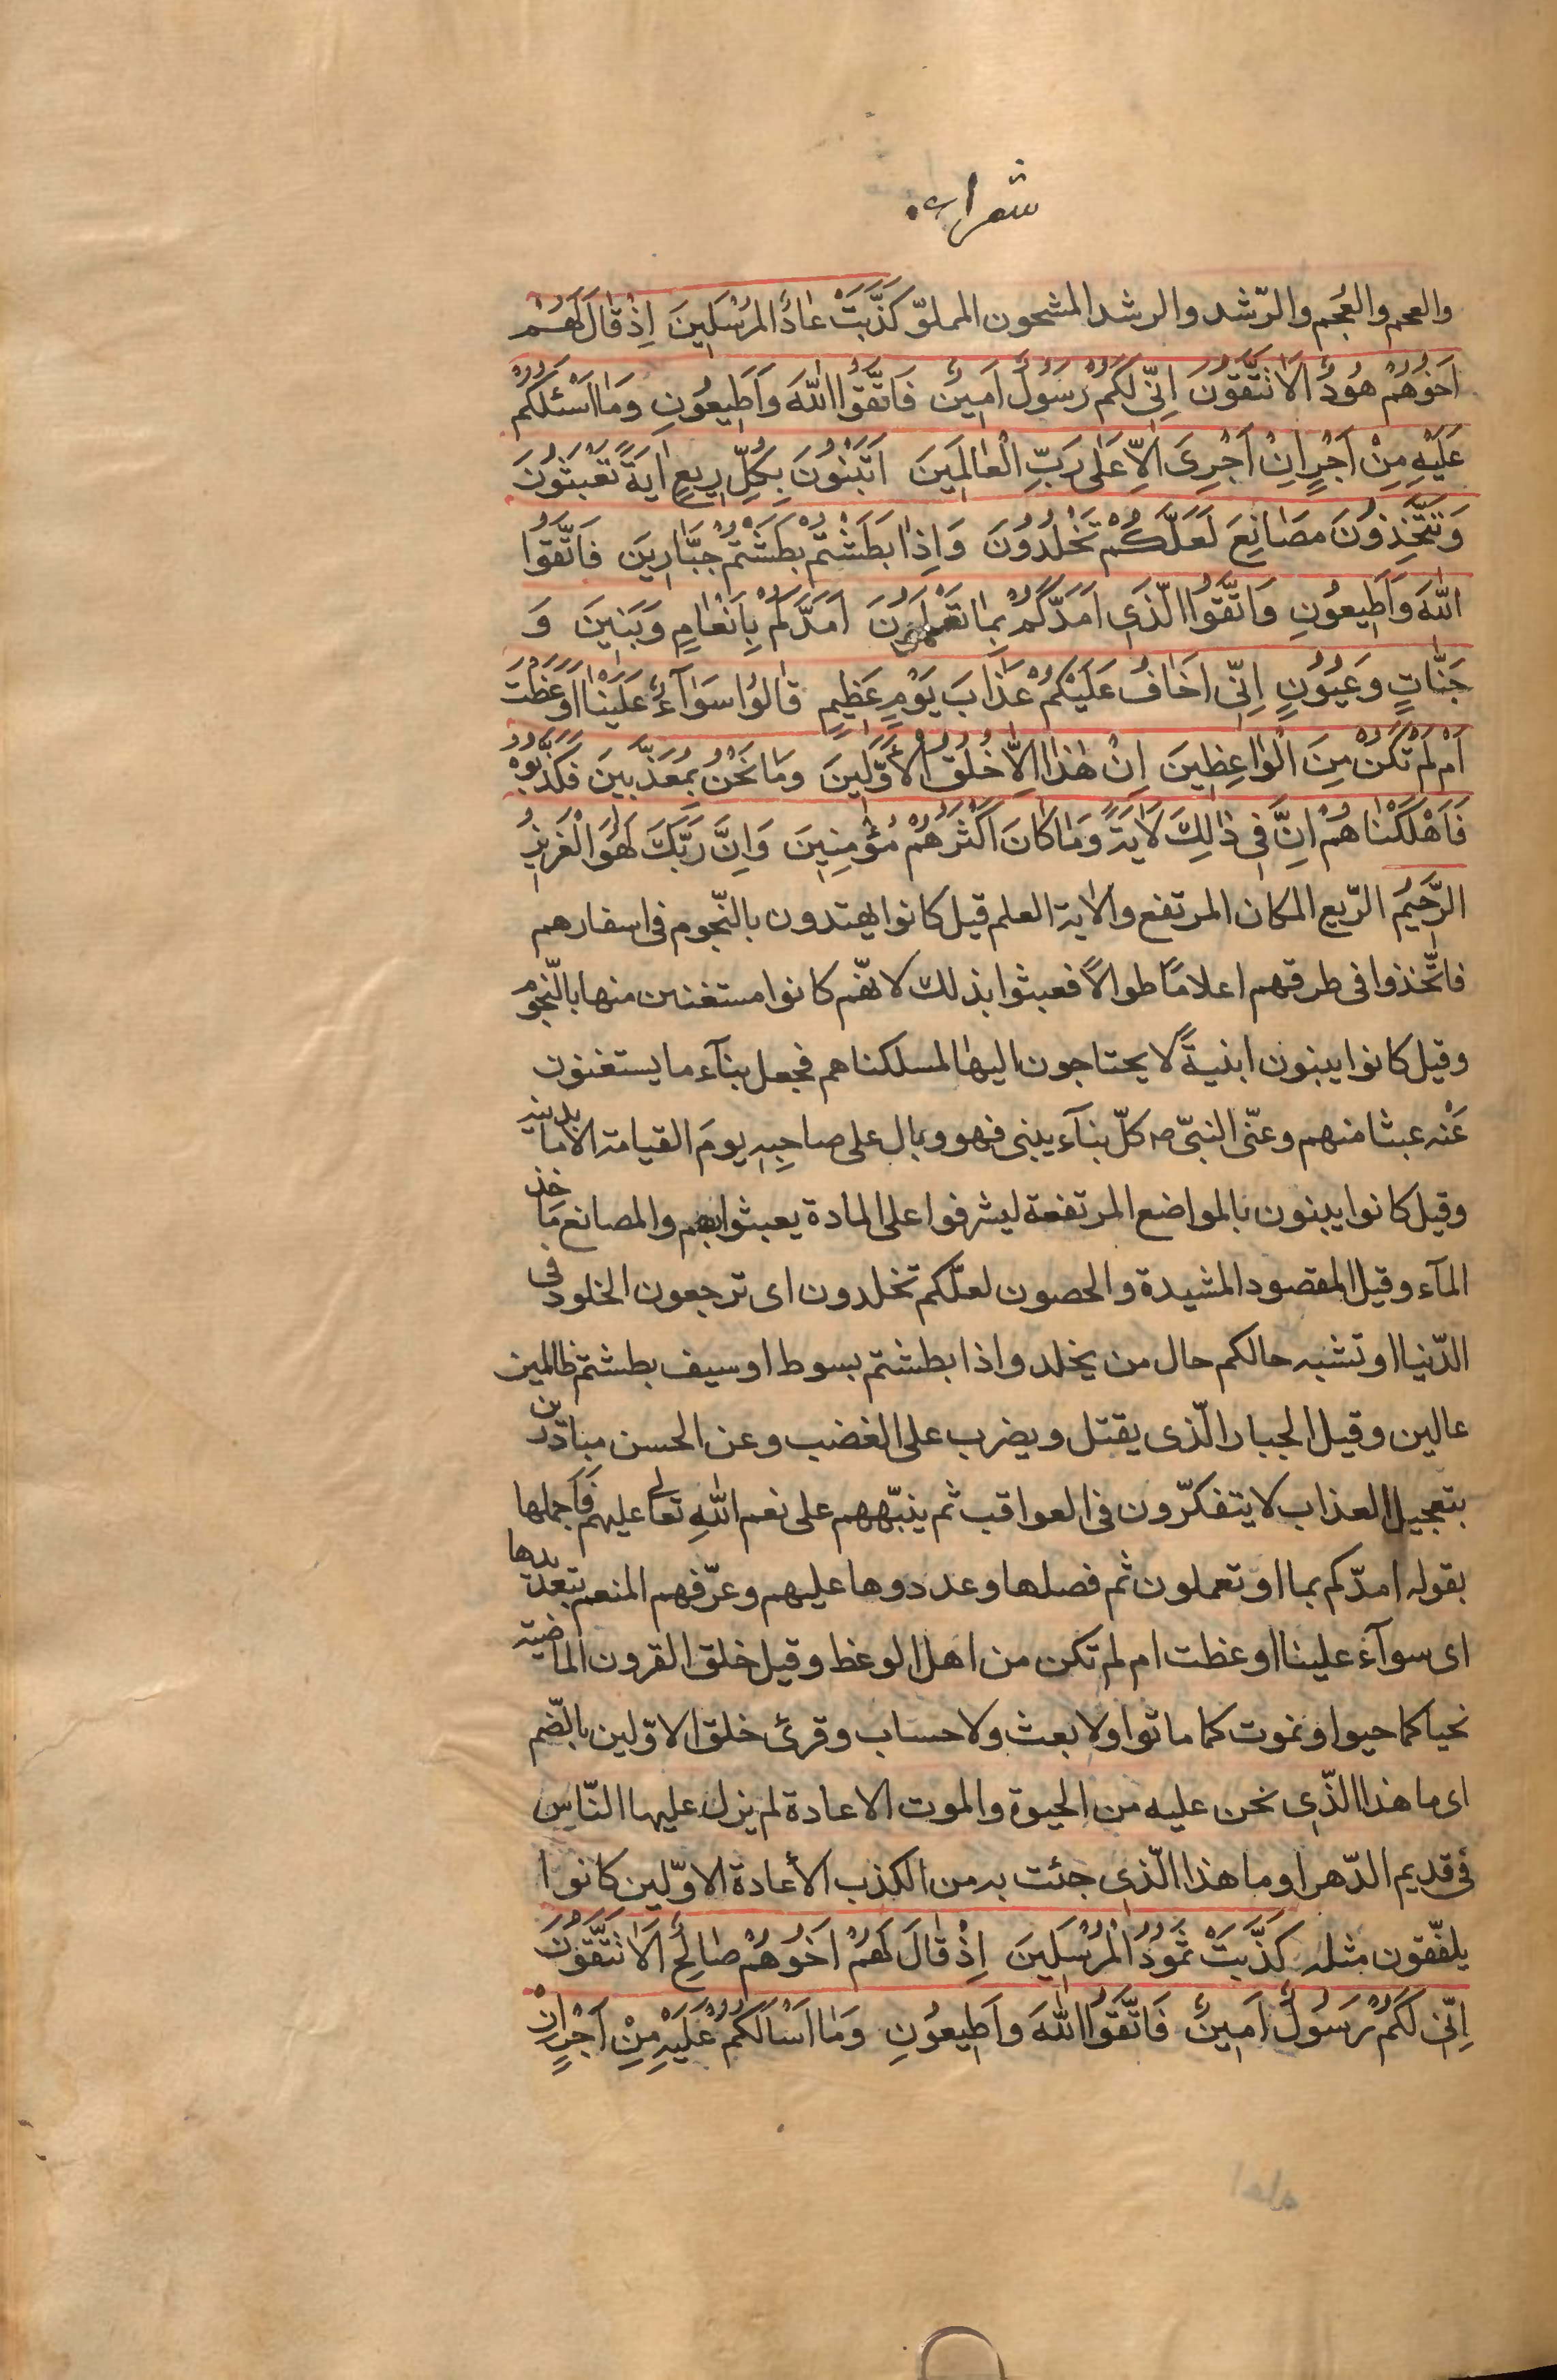 شعراء
والعجم والعُجم والرّشد والرشد المشحون المملوّ كَذَّبَتْ عٰادٌ الْمُرْسَلِينَ اِذْ قٰالَ لَهُمْ
اَخُوهُمْ هُودٌ اَلَا تَتَّقُونَ اِنِّى لَكُمْ رَسُولٌ اَمِينٌ فَاتَّقُوا اللّٰهَ وَاَطِيعُونِ وَمٰا اَسْئَلُكُمْ
عَلَيْهِ مِنْ اَجْرٍ اِنْ اَجْرِىَ اِلّٰا عَلٰى رَبِّ الْعٰالَمِينَ اَتَبْنُونَ بِكُلِّ رِيعٍ اٰيَةً تَعْبَثُونَ
وَتَتَّخِذُونَ مَصٰانِعَ لَعَلَّكُمْ تَخْلُدُونَ وَاِذٰا بَطَشْتُمْ بَطَشْتُمْ جَبّٰارِينَ فَاتَّقُوا
اللّٰهَ وَاَطِيعُونِ وَاتَّقُوا الَّذِى اَمَدَّكُمْ بِمٰا تَعْلَمُونَ اَمَدَّكُمْ بِاَنْعٰامٍ وَبَنِينَ وَ
جَنّٰاتٍ وَعُيُونٍ اِنِّى اَخٰافُ عَلَيْكُمْ عَذٰابَ يَوْمٍ عَظِيمٍ قٰالُوا سَوٰآءٌ عَلَيْنٰا اَوَعَظْتَ
اَمْ لَمْ تَكُنْ مِنَ الْوٰاعِظِينَ اِنْ هٰذٰا اِلّٰا خُلُقُ الْأَوَّلِينَ وَمٰا نَحْنُ بِمُعَذَّبِينَ فَكَذَّبُوهُ
فَاَهْلَكْنٰاهُمْ اِنَّ فِى ذٰلِكَ لَاٰيَةً وَمٰا كٰانَ اَكْثَرُهُمْ مُؤْمِنِينَ وَاِنَّ رَبَّكَ لَهُوَ الْعَزِيزُ
الرَّحِيمُ الرّيع المكان المرتفع والاٰية العلم قيل كانوا يهتدون بالنّجوم فى اسفارهم
فاتّخذوا فى طرقهم اعلامًا طوالًا فعبثوا بذلك لانّهم كانوا مستغنين منها بالنّجوم
وقيل كانوا يبنون ابنيةً لا يحتاجون اليها لمسلكناهم فجعل بنآء ما يستغنون
عَنْه عبثا منهم وعن النبىّ ص كلّ بنآء يبنى فهو وبال على صاحِبِه يومَ القيامة الا ما بدمنه
وقيل كانوا يبنون بالمواضع المرتفعة ليشرفوا على المادة يعبثوا بهم والمصانع مَاخذ
المآء وقيل المقصود المشيدة والحصون لعلّكم تخلدون اى ترجعون الخلود فى
الدّنيا او تشبه حالكم حال من يخلد واذا بطشتم بسوط او سيف بطشتم ظالمين
عالين وقيل الجبار الّذى يقتل ويضرب على الغضب وعن الحسن مبادّرين
بتعجيل العذاب لا يتفكّرون فى العواقب ثم ينبّههم على نعم اللّٰه تعالى عليهم فَاجملها
بقوله امدّكم بما او تعملون ثم فصلها وعددوها عليهم وعرّفهم المنعم بتعديدها
اى سوآء علينا اوعظت ام لم تكن من اهل الوغظ وقيل خلق القرون الماضية
نحيا كما حيوا ونموت كما ماتوا ولا بعث ولا حساب وقرئ خلق الاوّلين بالضّم
اى ما هذا الّذى نحن عليه من الحيوة والموت الا عادة لم يزل عليها النّاس
فى قديم الدّهر او ما هذا الّذى جئت به من الكذب الأ عادة الاوّلين كانوا
يلفّقون مثله كَذَّبَتْ ثَمُودُ الْمُرْسَلِينَ اِذْ قٰالَ لَهُمْ اَخُوهُمْ صٰالِحٌ اَلَا تَتَّقُونَ
اِنِّى لَكُمْ رَسُولٌ اَمِينٌ فَاتَّقُوا اللّٰهَ وَاَطِيعُونِ وَمٰا اَسْاَلُكُمْ عَلَيْهِ مِنْ اَجْرٍ اِنْ